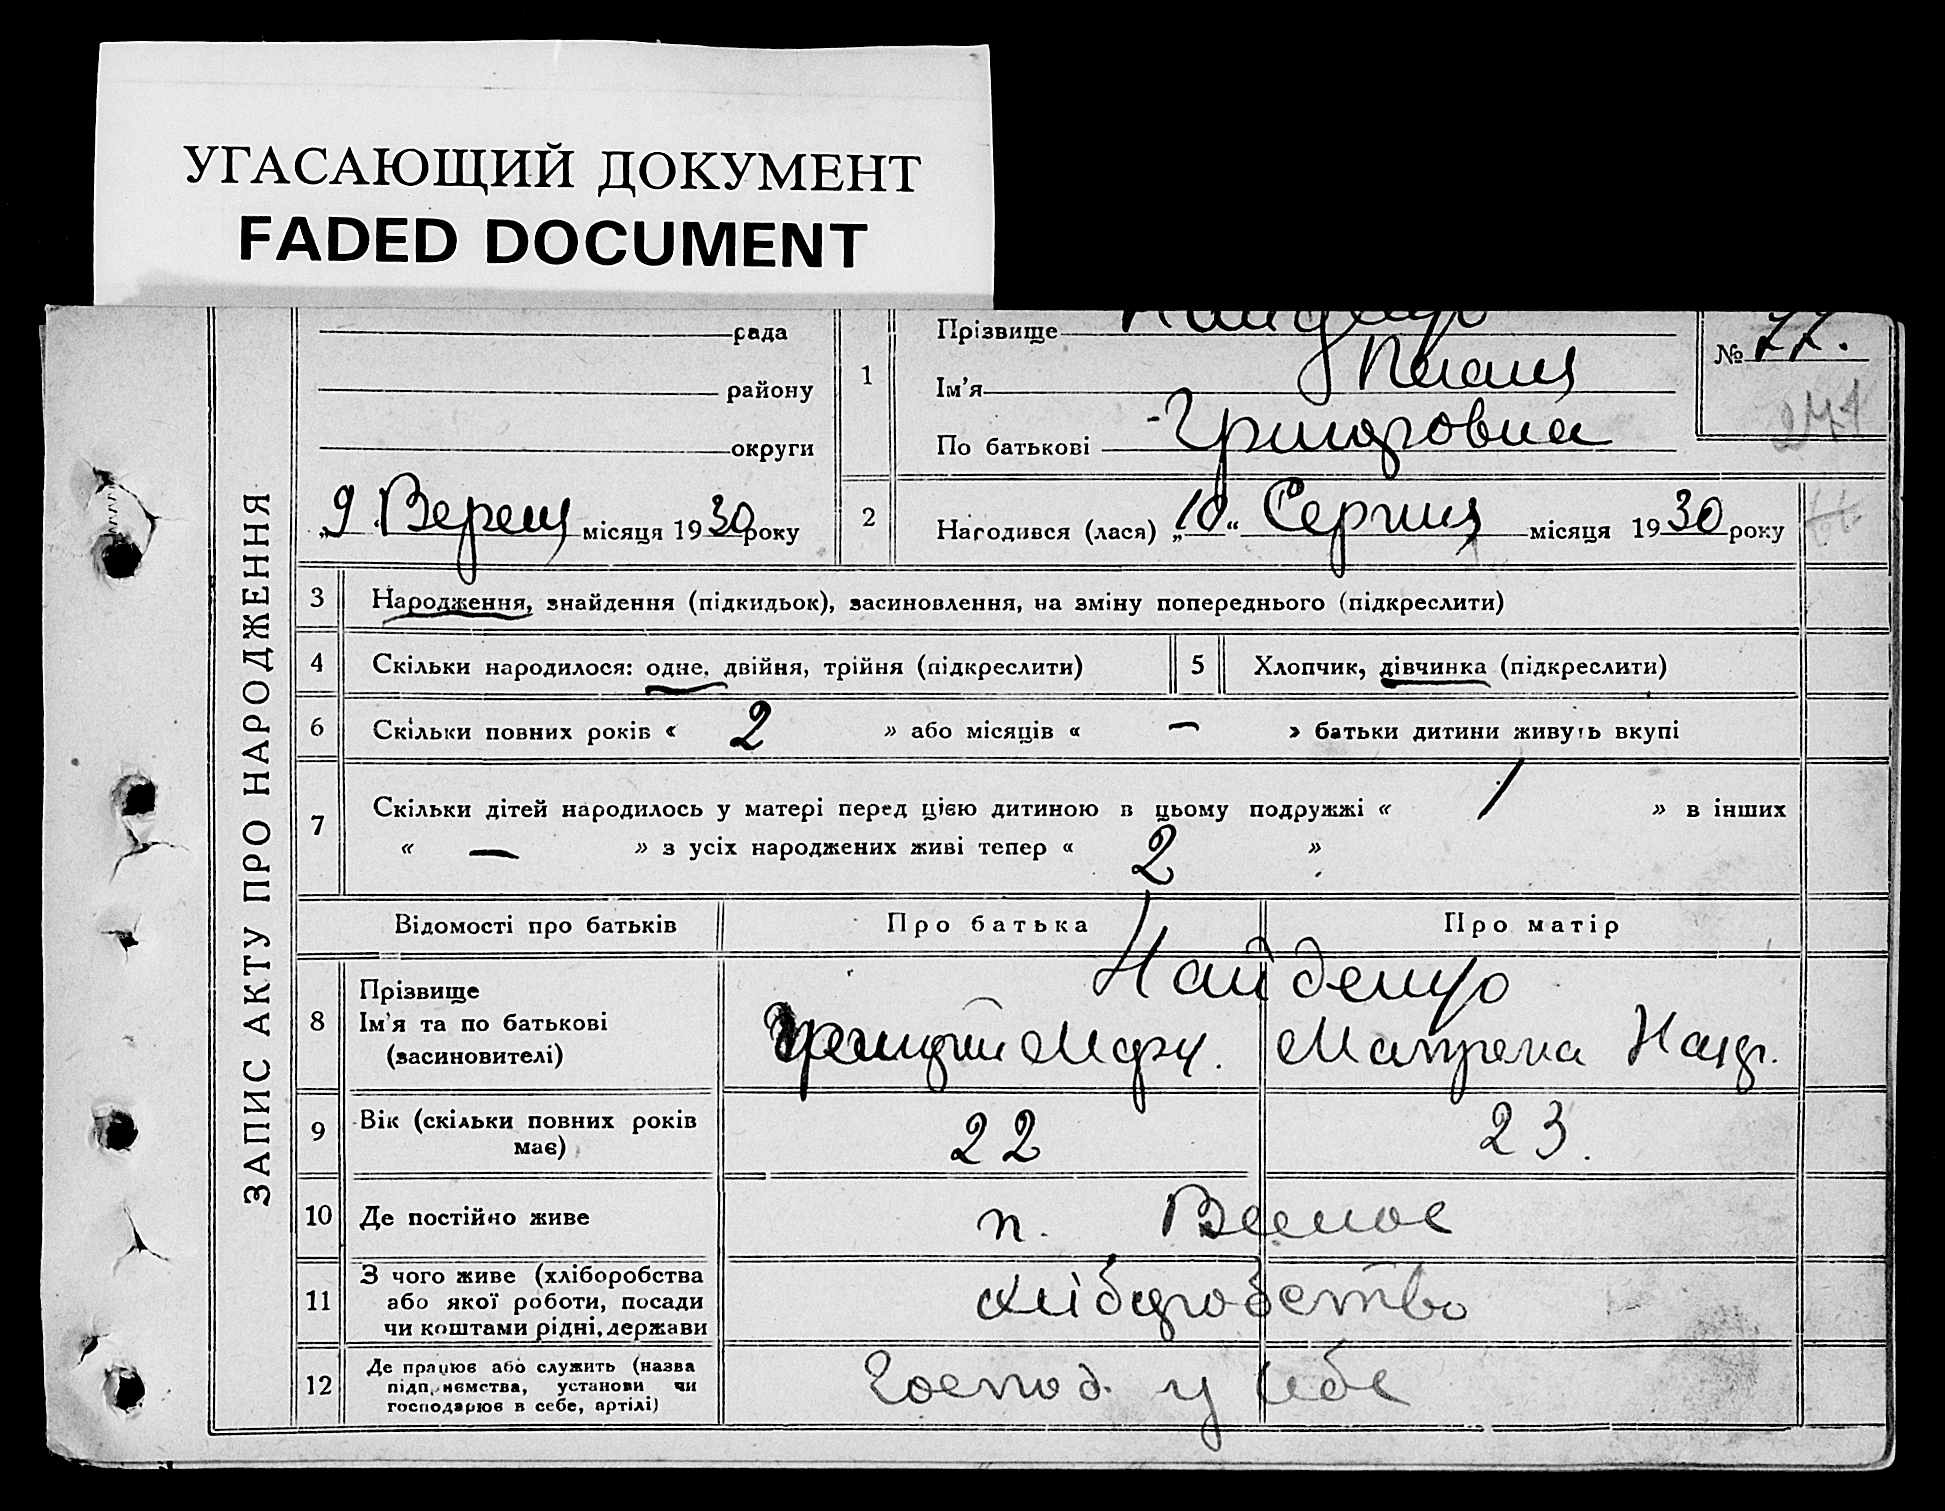 УГАСАЮЩИЙ ДОКУМЕНТ
FADED DOCUMENT
ЗАПИС АКТУ ПРО НАРОДЖЕННЯ
рада
району
округи
„9 Верещ місяця 1930 року
1
Прізвище
Ім'я
По батькові Григоровна
№ 77.
271
2
Народився (лася) „10“ Серпня місяця 1930 року
3 Народження, знайдення (підкидьок), засиновлення, на зміну попереднього (підкреслити)
4 Скільки народилося: одне, двійня, трійня (підкреслити)
5 Хлопчик, дівчинка (підкреслити)
6 Скільки повних років « 2 » або місяців « — » батьки дитини живуть вкупі
7 Скільки дітей народилось у матері перед цією дитиною в цьому подружжі « 1 » в інших
« — » з усіх народжених живі тепер « 2 »
Відомості про батьків Про батька Про матір
8 Прізвище
Ім'я та по батькові
(засиновителі)
Найденко
Мотрена
9 Вік (скільки повних років
має)
22 23.
10 Де постійно живе п. Веселое
11 З чого живе (хліборобства
або якої роботи, посади
чи коштами рідні, держави
хліборобство
12 Де працює або служить (назва
підприємства, установи чи
господарює в себе, артілі)
Господ. у себе